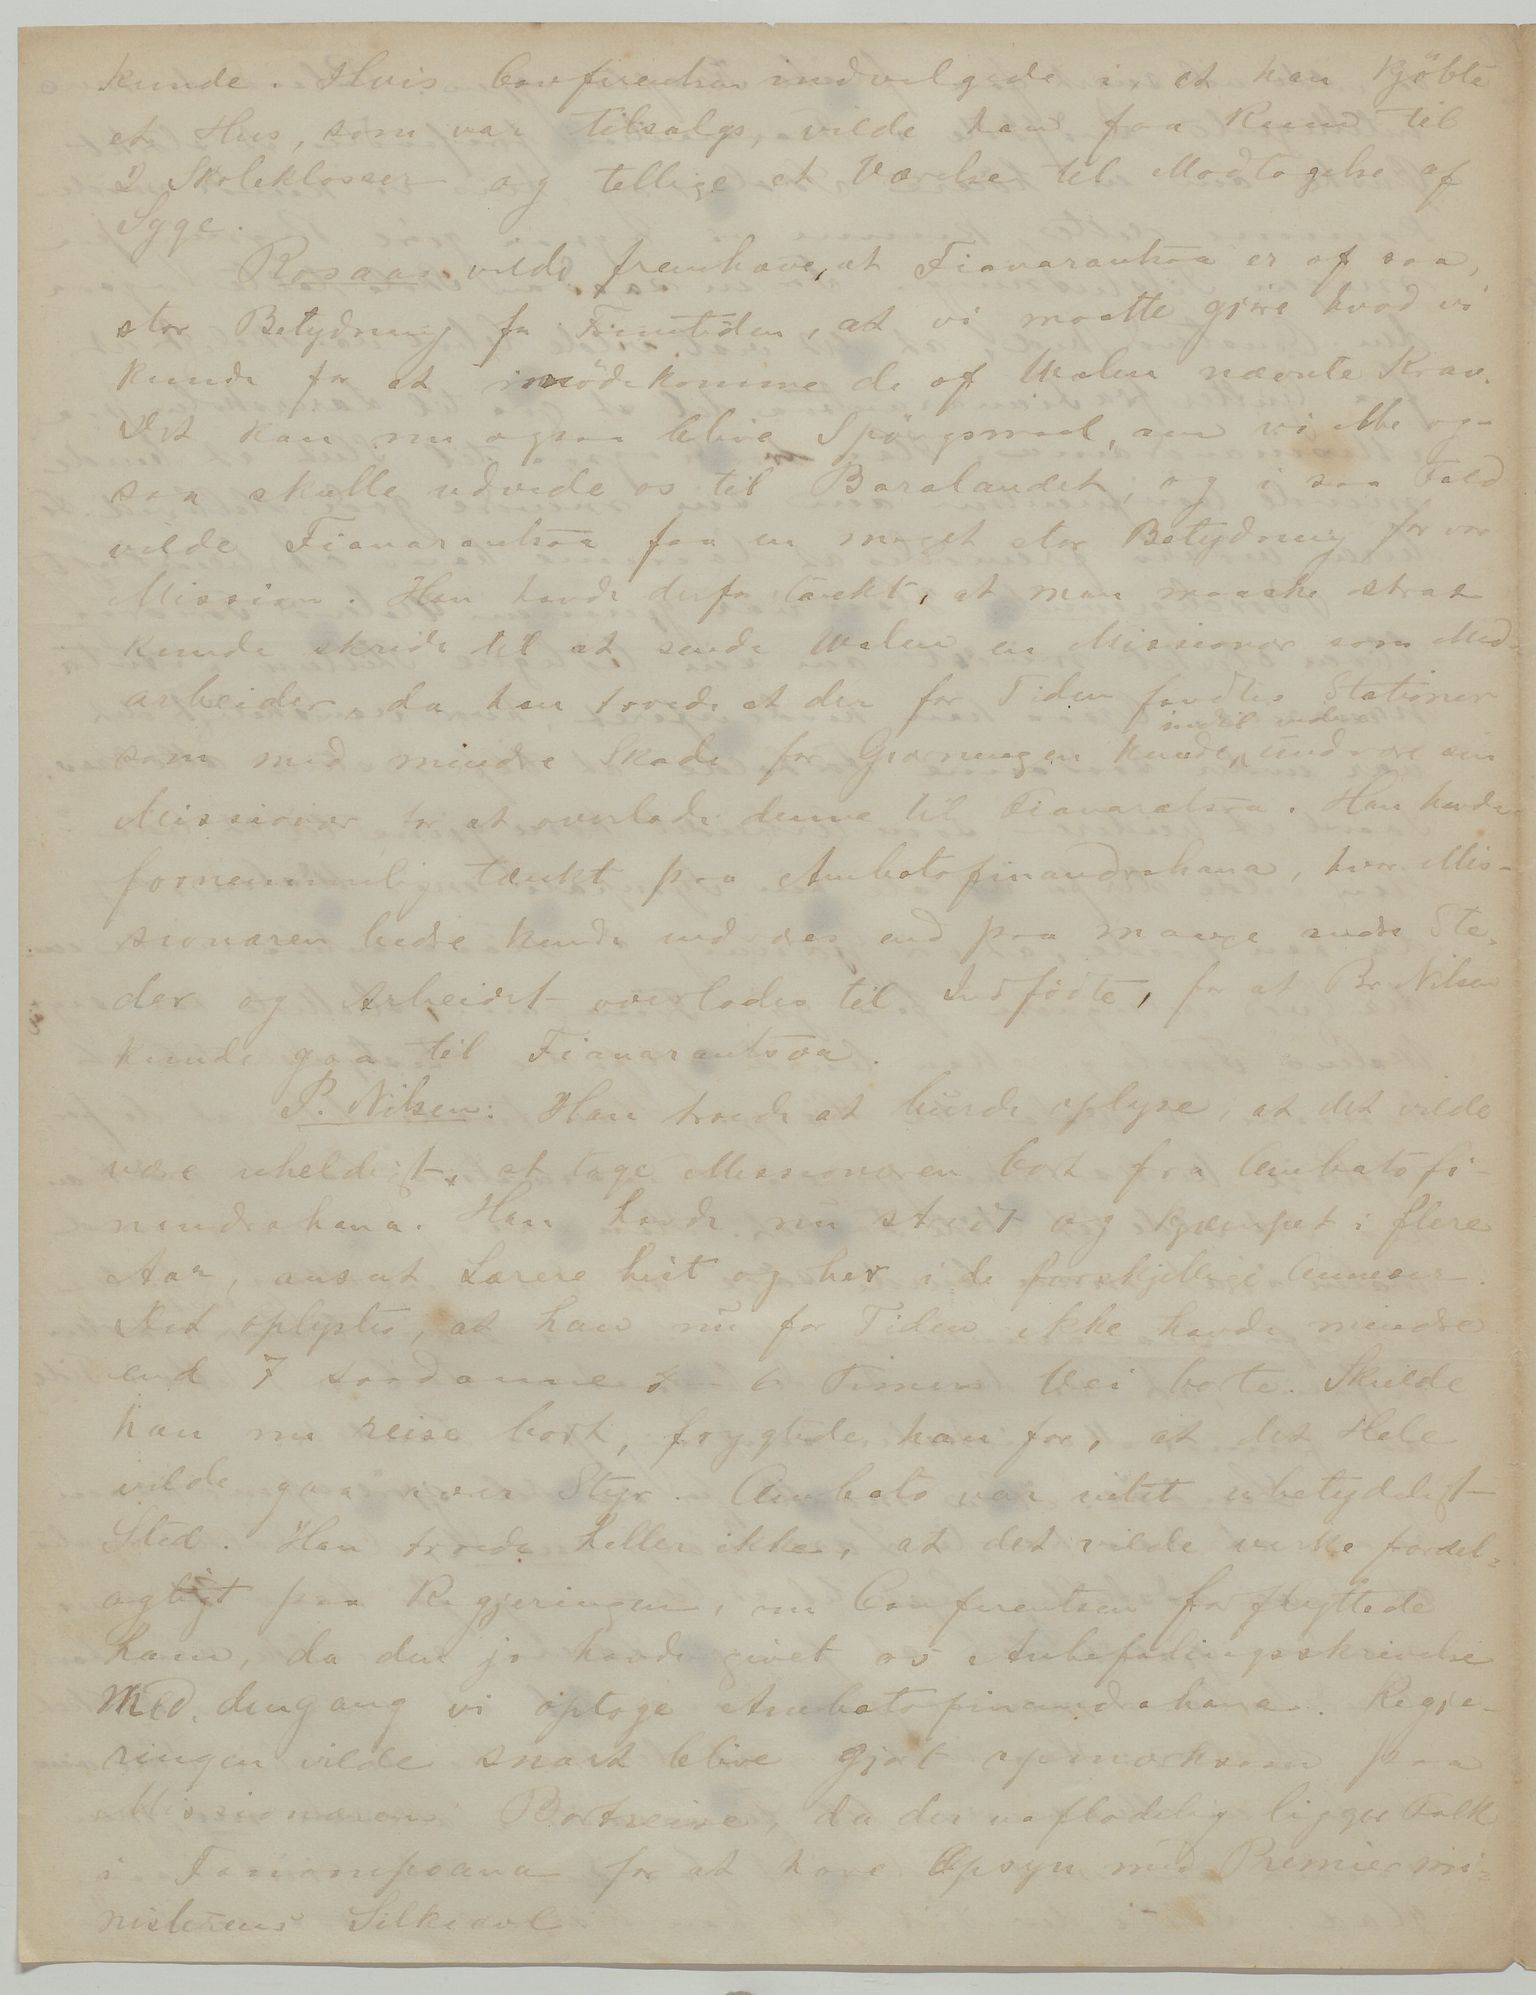 kunde. Hvis Conferentsen indvilgede i, at han kjöbte
et Hus, som var tilsalgs, vilde han faa Rum til
2 Skoleklasser og tillige et Værelse til Modtagelse af
Syge.
Rosaas vilde fremhæve, at Fianarantsoa er af saa
stor Betydning for Fremtiden, at vi maatte gjöre hvad vi
kunde for at imödekomme de af Walen nævnte Krav.
Det kan nu ogsaa blive Spörgsmaal, om vi ikke og-
saa skulle udvide os til Baralandet, og i saa Fald
vilde Fianarantsoa faa en meget stor Betydning for vor
Mission. Han havde derfor tænkt, at man maaske strax
kunde skride til at sende Walen en Missionær som Med-
arbeider, da han troede at der for Tiden fandtes Stationer
indtil videre
som med mindre Skade for Gjerningen kunde undvære sin
Missionær for at overlade denne til Fianarantsoa. Han havde
fornemmelig tænkt paa Ambatofinandrahana, hvor Mis-
sionæren bedre kunde undværes end paa mange andre Ste-
der og Arbeidet overlades til Indfödte, for at Br Nilsen
kunde gaa til Fianarantsoa.
P. Nilsen: Han troede at burde oplyse, at det vilde
være uheldigt, at tage Missionæren bort fra Ambatofi-
nandrahana. Han havde nu stridt og kjæmpet i flere
Aar, ansat Lærere hist og her i de forskjellige Annexer.
Det oplystes, at han nu for Tiden ikke havde mindre
end 7 saadanne 5 - 6 Timers Vei borte. Skulde
han nu reise bort, frygtede han for, at det Hele
vilde gaa over Styr. Ambato var intet ubetydeligt
Sted. Han troede heller ikke, at det vilde virke fordel-
agtigt paa Regjeringen, om Conferentsen forflyttede
ham, da den jo havde givet os Anbefalingsskrivelse
med, dengang vi optoge Ambatofinandrahana. Regje-
ringen vilde snart blive gjort opmærksom paa
Missionærens Bortreise, da der uafladelig ligger Folk
i Fanompoana for at have Opsyn med Premiermi-
nisterens Silkeavl.